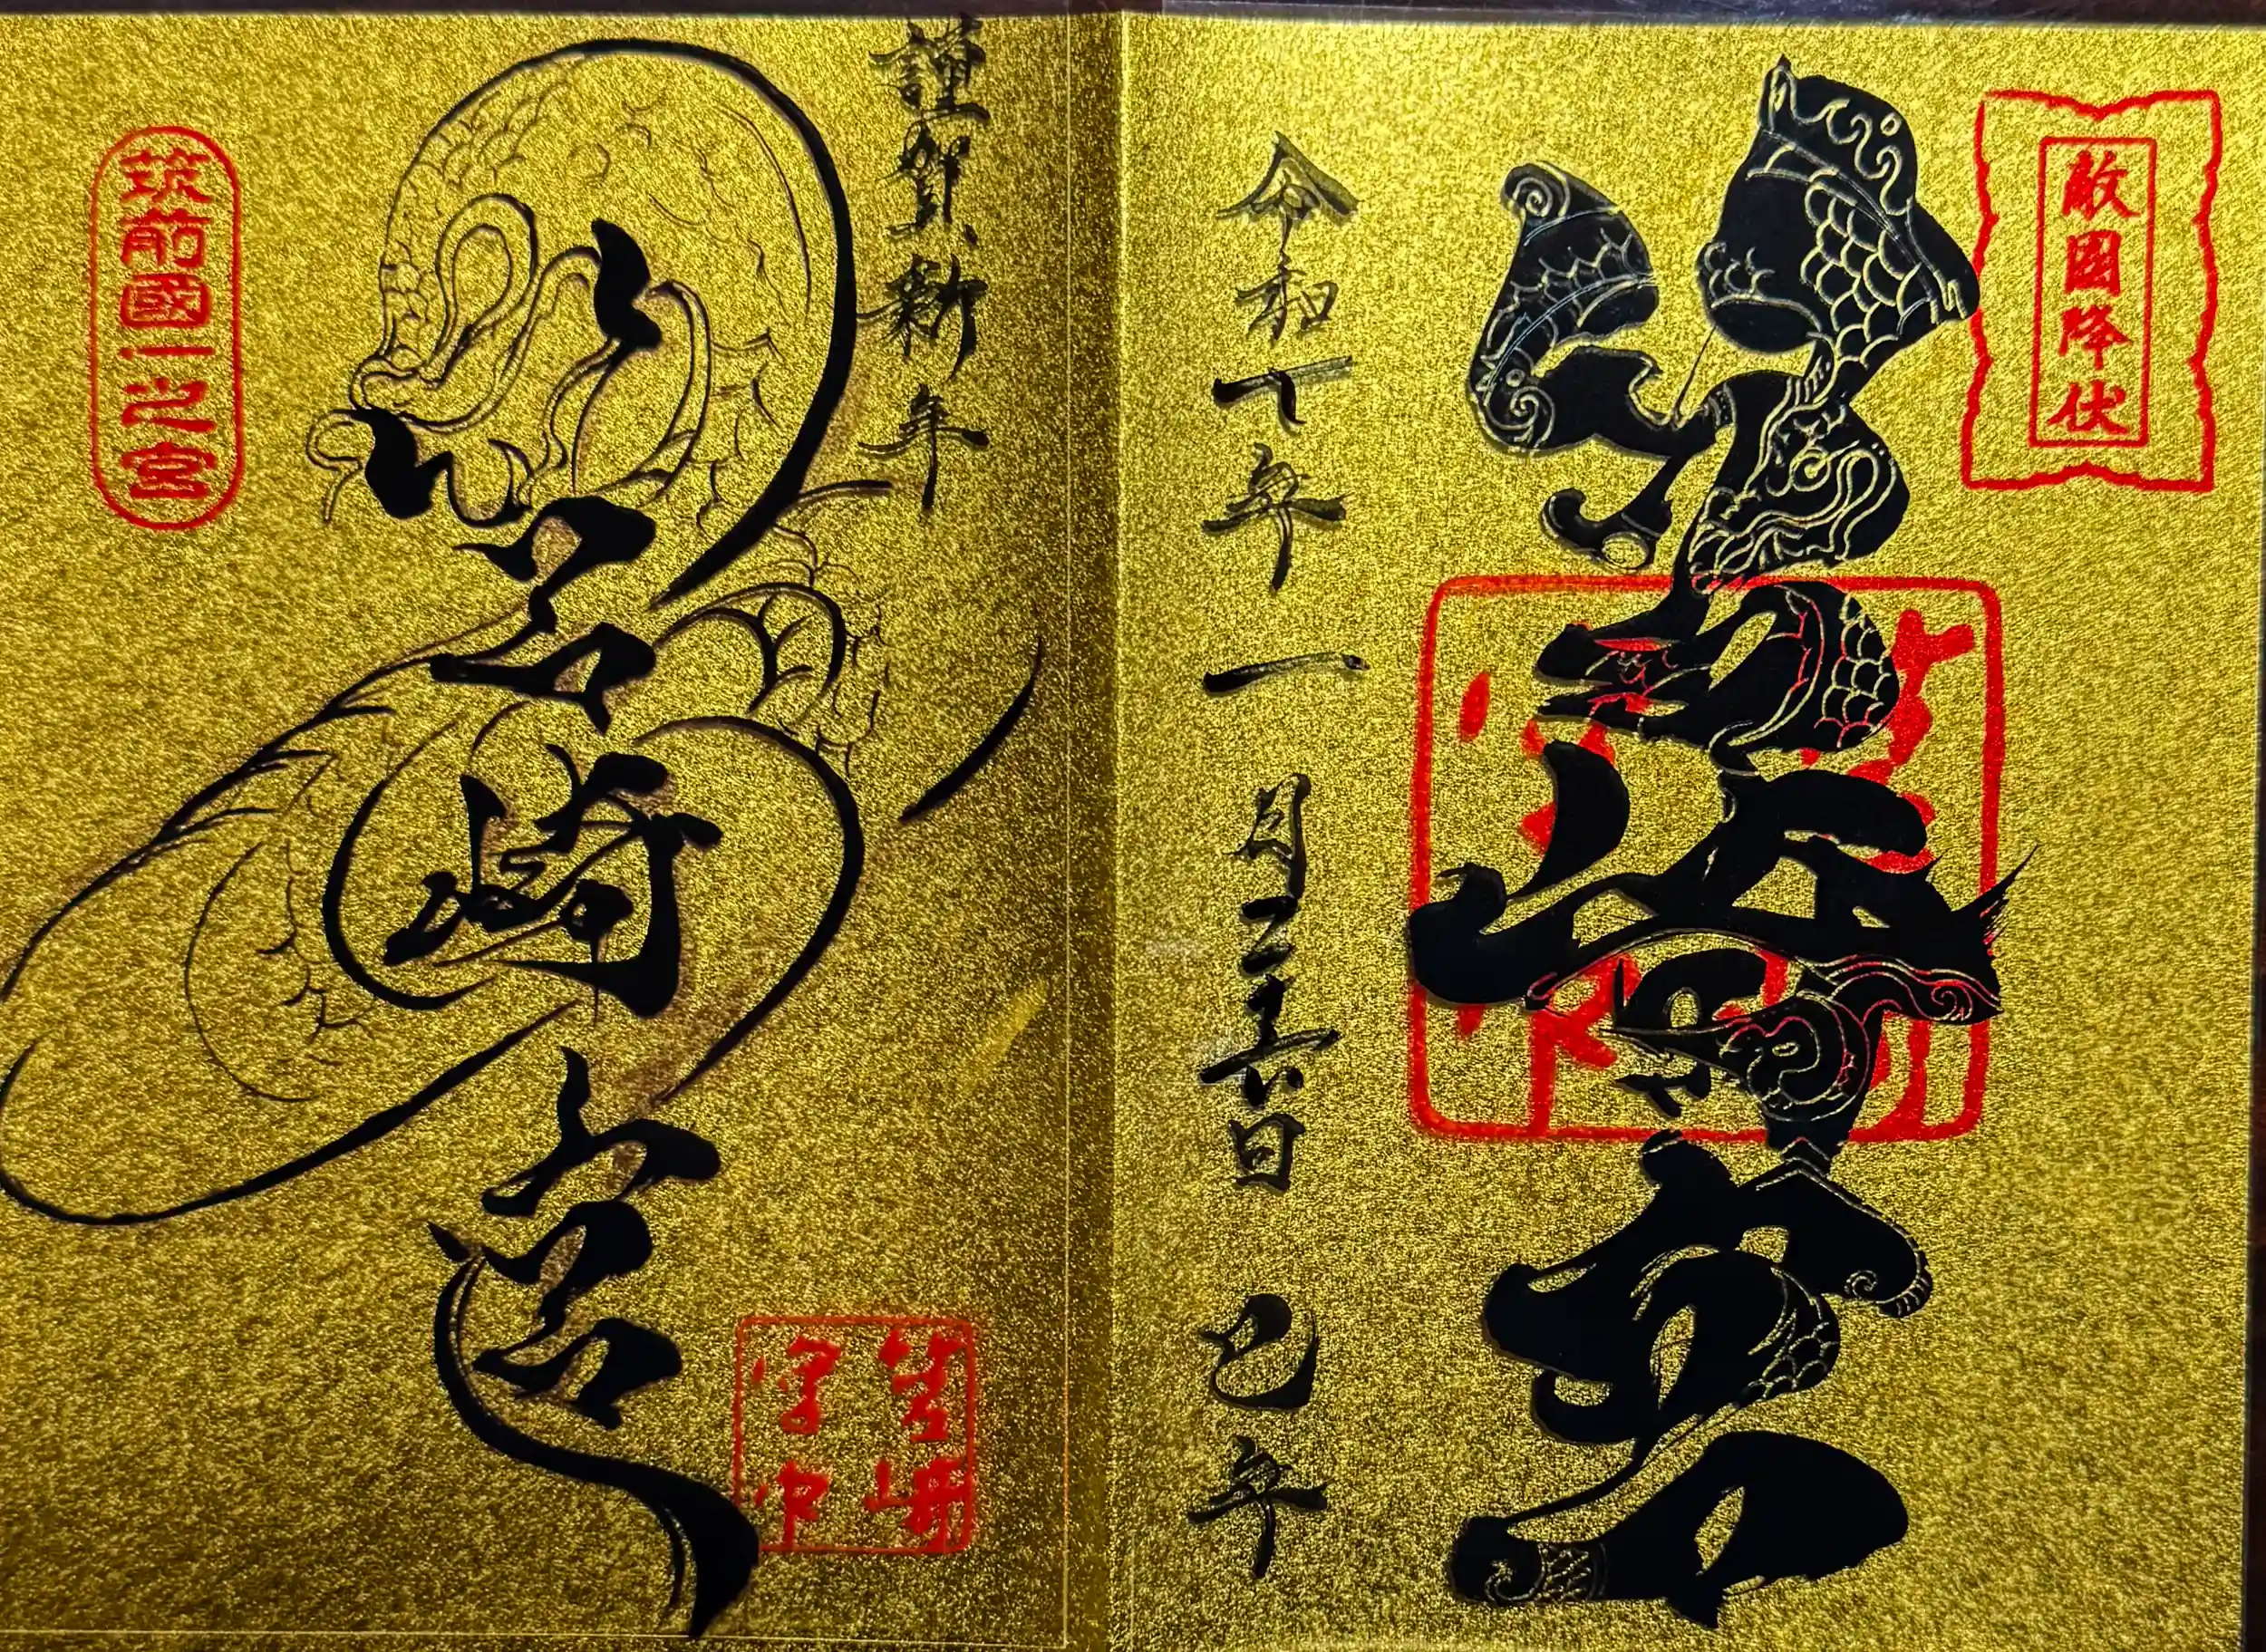 敵國降伏
筥崎宮
令和七年一月二十六日 巳年
謹賀新年
筥崎宮
筑前國一之宮